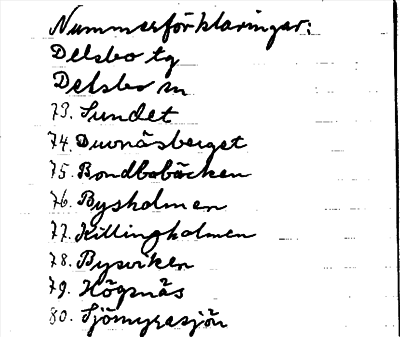 Nummerförklaringar:
Delsbo tg
Delsbo m
73. Sundet
74. Duvnäsberget
75. Bondbobäcken
76. Bysholmen
77. Killingholmen
78. Byviken
79. Högnäs
80. Sjömyrasjön